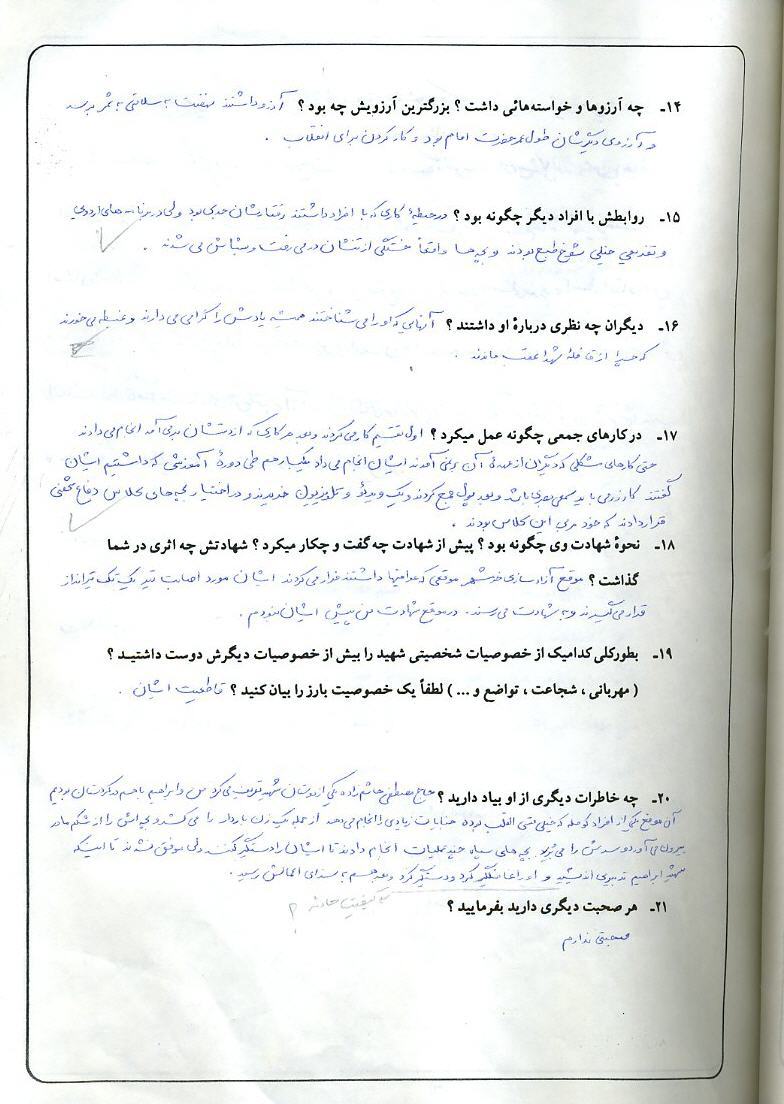 ۱۴ـ چه آرزوها و خواسته‌هائی داشت ؟ بزرگترین آرزویش چه بود ؟ آرزو داشتند نهضت به سلامتی به ثمر برسد
و آرزوی دیگرشان طول عمر حضرت امام بود و کار کردن برای انقلاب .
۱۵ـ روابطش با افراد دیگر چگونه بود ؟ در حیطهٔ کاری که با افراد داشتند رفتارشان جدی بود ولی در برنامه های اردوی
و تفریحی خیلی شوخ طبع بودند و بچه ها واقعاً خستگی از تنشان در می رفت و بشاش می شدند .
۱۶ـ دیگران چه نظری دربارهٔ او داشتند ؟ آنهایی که او را می شناختند همیشه یادش را گرامی می دارند و غبطه می خورند
که چرا از قافلهٔ شهدا عقب ماندند .
۱۷ـ در کارهای جمعی چگونه عمل میکرد ؟ اول تقسیم کار می کردند و بعد هر کاری که از دستشان برمی آمد انجام می دادند
حتی کارهای مشکلی که دیگران از عهدهٔ آن برنمی آمدند ایشان انجام می داد یکبار هم طی دورهٔ آموزشی که داشتیم ایشان
گفتند کار رزمی باید سمعی بصری باشد و بعد پول جمع کردند و یک ویدئو و تلویزیون خریدند و در اختیار بچه های کلاس دفاع شخصی
قرار دادند که خود مربی این کلاس بودند .
۱۸ـ نحوهٔ شهادت وی چگونه بود ؟ پیش از شهادت چه گفت و چکار میکرد ؟ شهادتش چه اثری در شما
گذاشت ؟ موقع آزاد سازی خرمشهر موقعی که عراقیها داشتند فرار می کردند ایشان مورد اصابت تیر یک تک تیرانداز
قرار می گیرند و به شهادت می رسند . در موقع شهادت من پیش ایشان نبودم .
۱۹ـ بطورکلی کدامیک از خصوصیات شخصیتی شهید را بیش از خصوصیات دیگرش دوست داشتیـد ؟
( مهربانی ، شجاعت ، تواضع و ... ) لطفاً یک خصوصیت بارز را بیان کنید ؟ قاطعیت ایشان .
۲۰ـ چه خاطرات دیگری از او بیاد دارید ؟ حاج مصطفی هاشم زاده یکی از دوستان شهید تعریف می کرد من و ابراهیم با هم در کردستان بودیم
آن موقع یکی از افراد کومله که خیلی قسی القلب بوده جنایات زیادی را انجام می دهد از جمله یک زن باردار را می کشد و بچه اش را از شکم مادر
بیرون می آورد و سرش را می برد بچه های سپاه چند عملیات انجام دادند تا ایشان را دستگیر کنند ولی موفق نشدند تا اینکه
شهید ابراهیم تدبیری اندیشید و او را غافلگیر کرد و دستگیر کرد و بعد هم به سزای اعمالش رسید .
۲۱ـ هر صحبت دیگری دارید بفرمایید ؟ کیفیت حادثه ؟
صحبتی ندارم